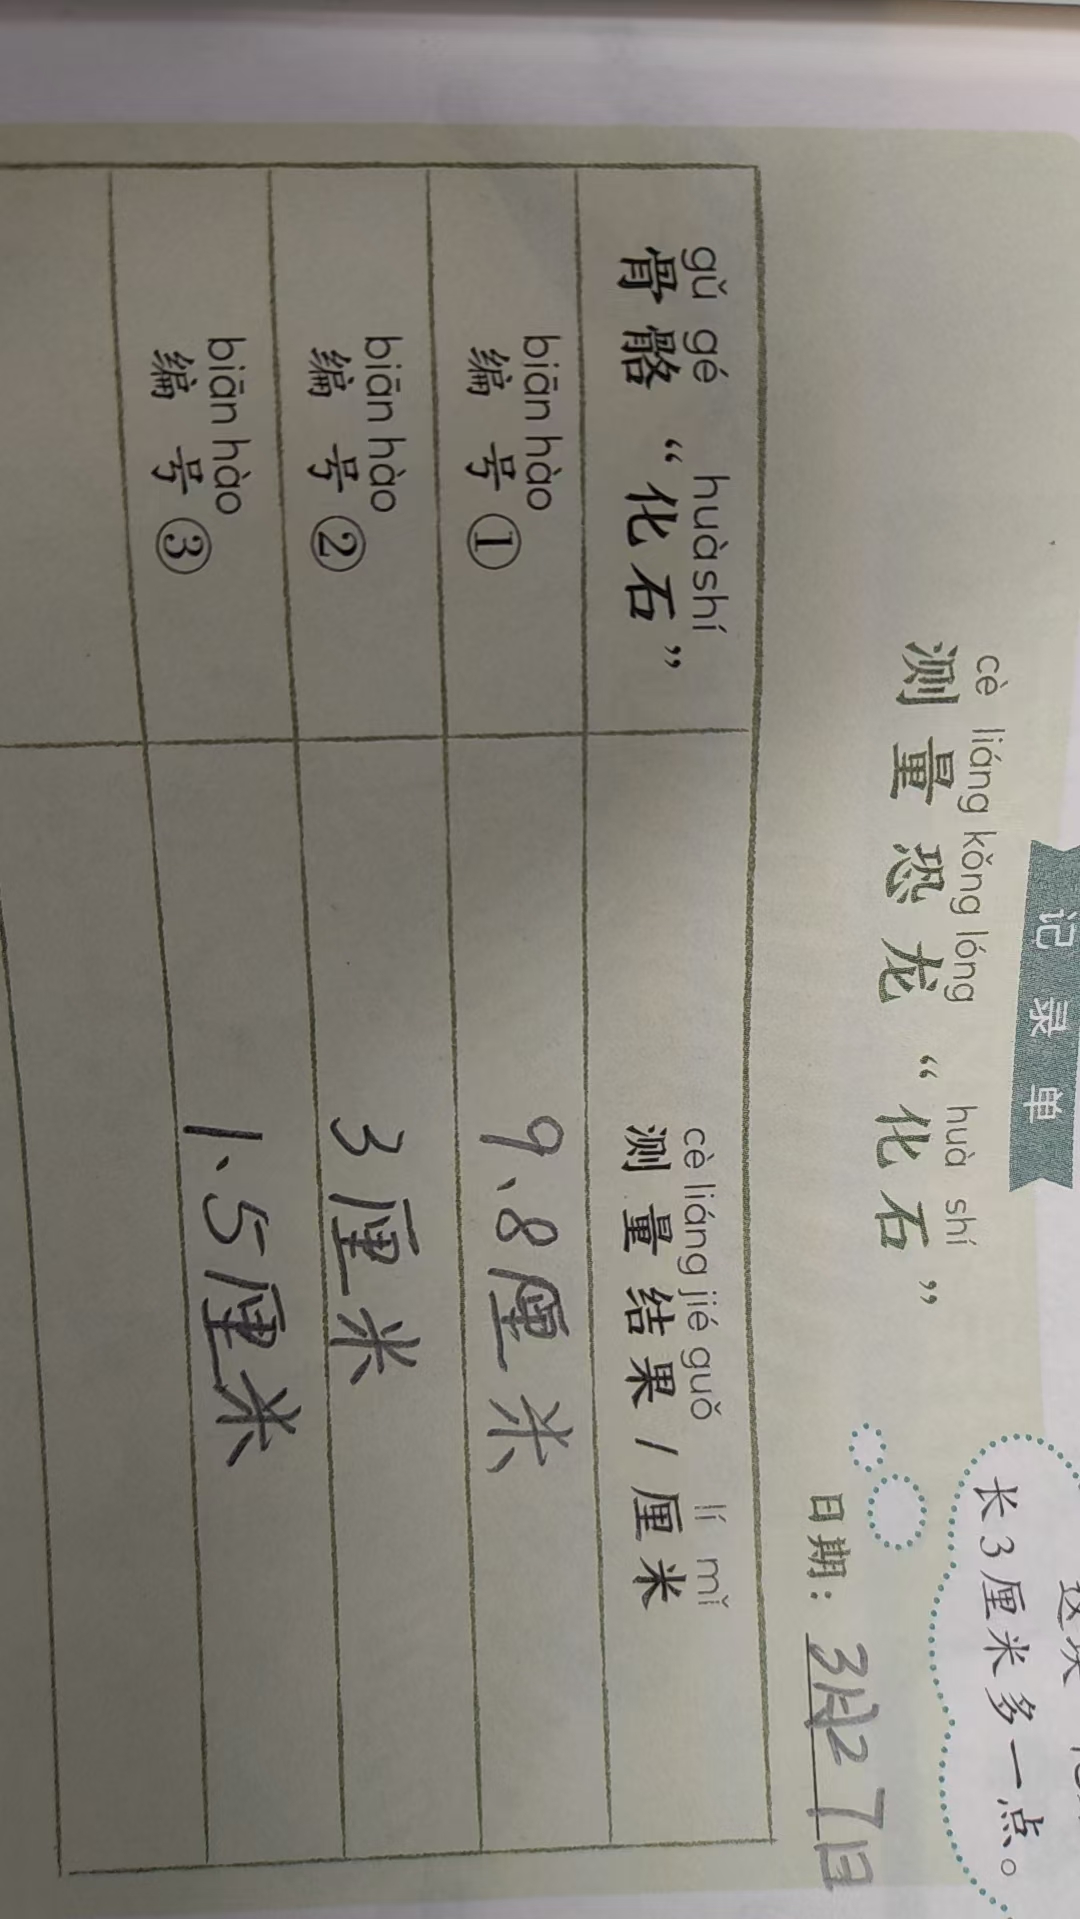 长3厘米多一点。
记录单
cè liáng kǒng lóng huà shí
测量恐龙“化石”
日期：3月27日
gǔ gé huà shí cè liáng jié guǒ lí mǐ
骨骼“化石” 测量结果/厘米
biān hào
编号① 9、8厘米
biān hào
编号② 3厘米
biān hào
编号③ 1、5厘米